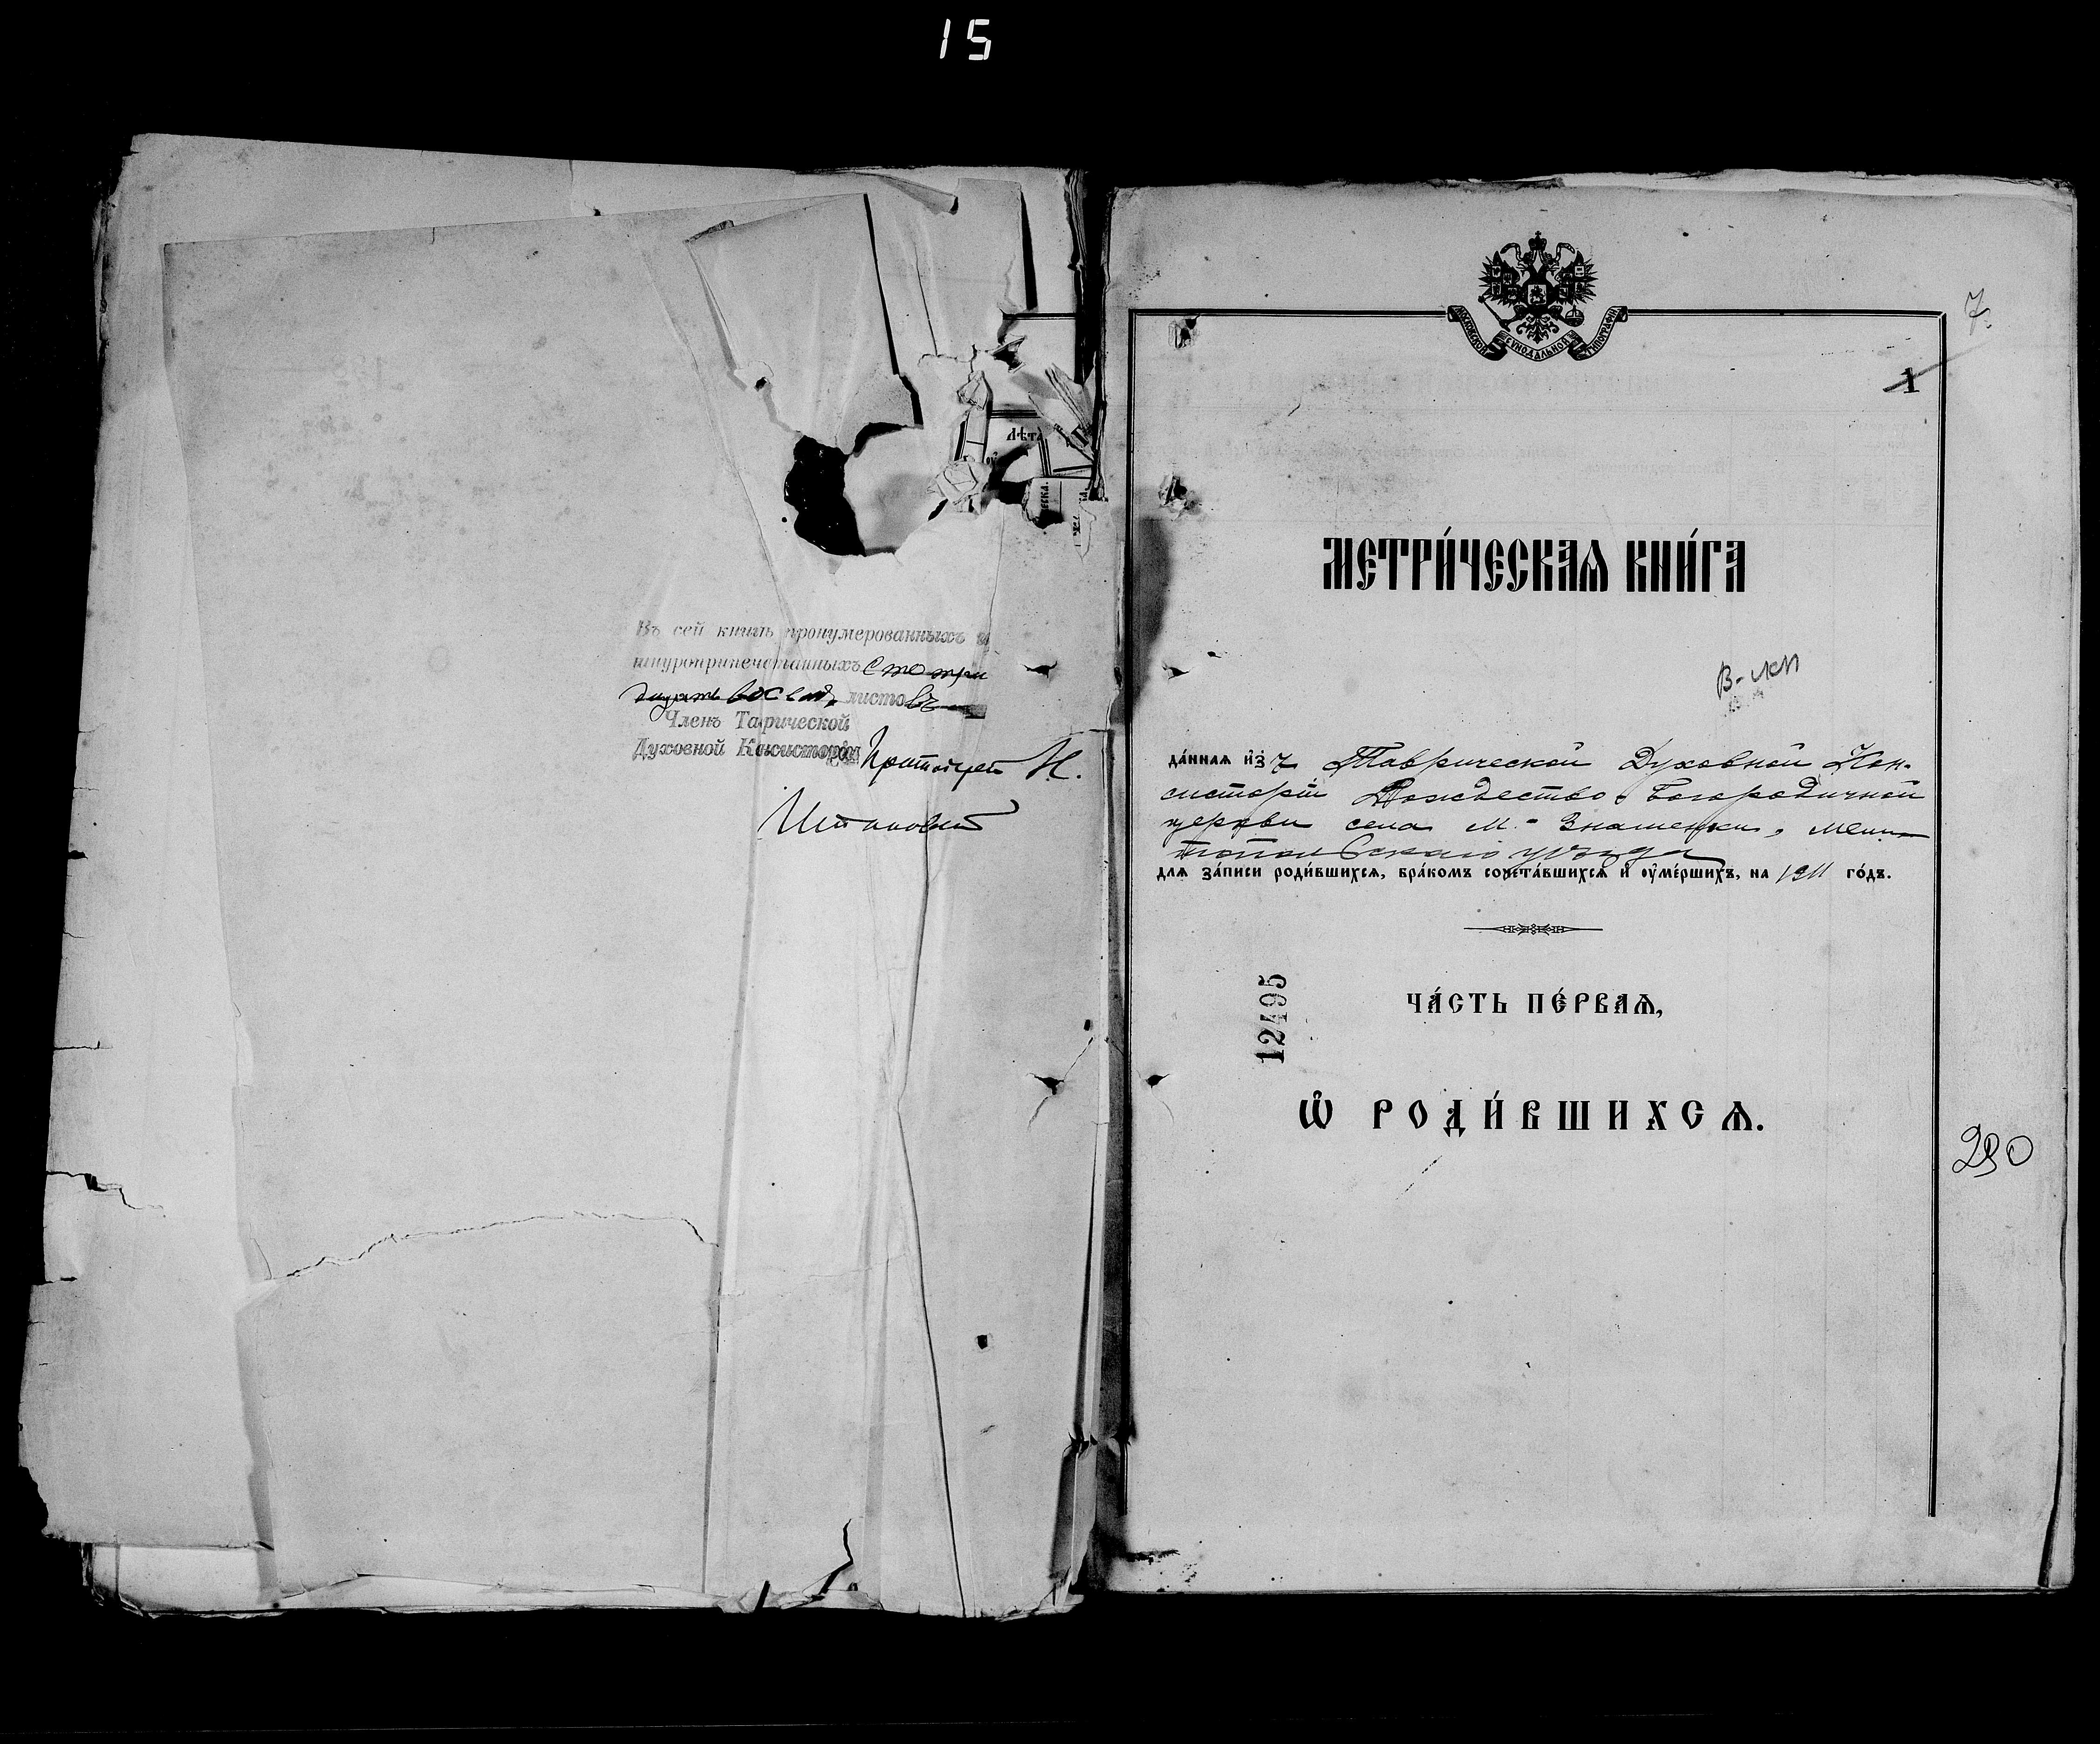 15
лѣта
Въ сей книгѣ пронумерованныхъ и
шнуроприпечатанныхъ сто три
дцать восемь листовъ
Членъ Таврической
Духовной Консисторіи Протоіерей Н.
МОСКОВСКОЙ СѴНОДАЛЬНОЙ ТИПОГРАФІИ
7.
1
МЕТРИ́ЧЕСКАѦ КНИ́ГА
да́нная и҆зъ Таврической Духовной Кон-
систоріи Рождество-Богородичной
церкви села М.-Знаменки, Мели-
топольскаго уѣзда
для за́писи роди́вшихсѧ, бра́комъ сочета́вшихсѧ и҆ оу҆ме́ршихъ, на 1911 го́дъ.
12495
ЧА́СТЬ ПЕ́РВАѦ,
Ѡ҆ РОДИ́ВШИХСѦ.
290